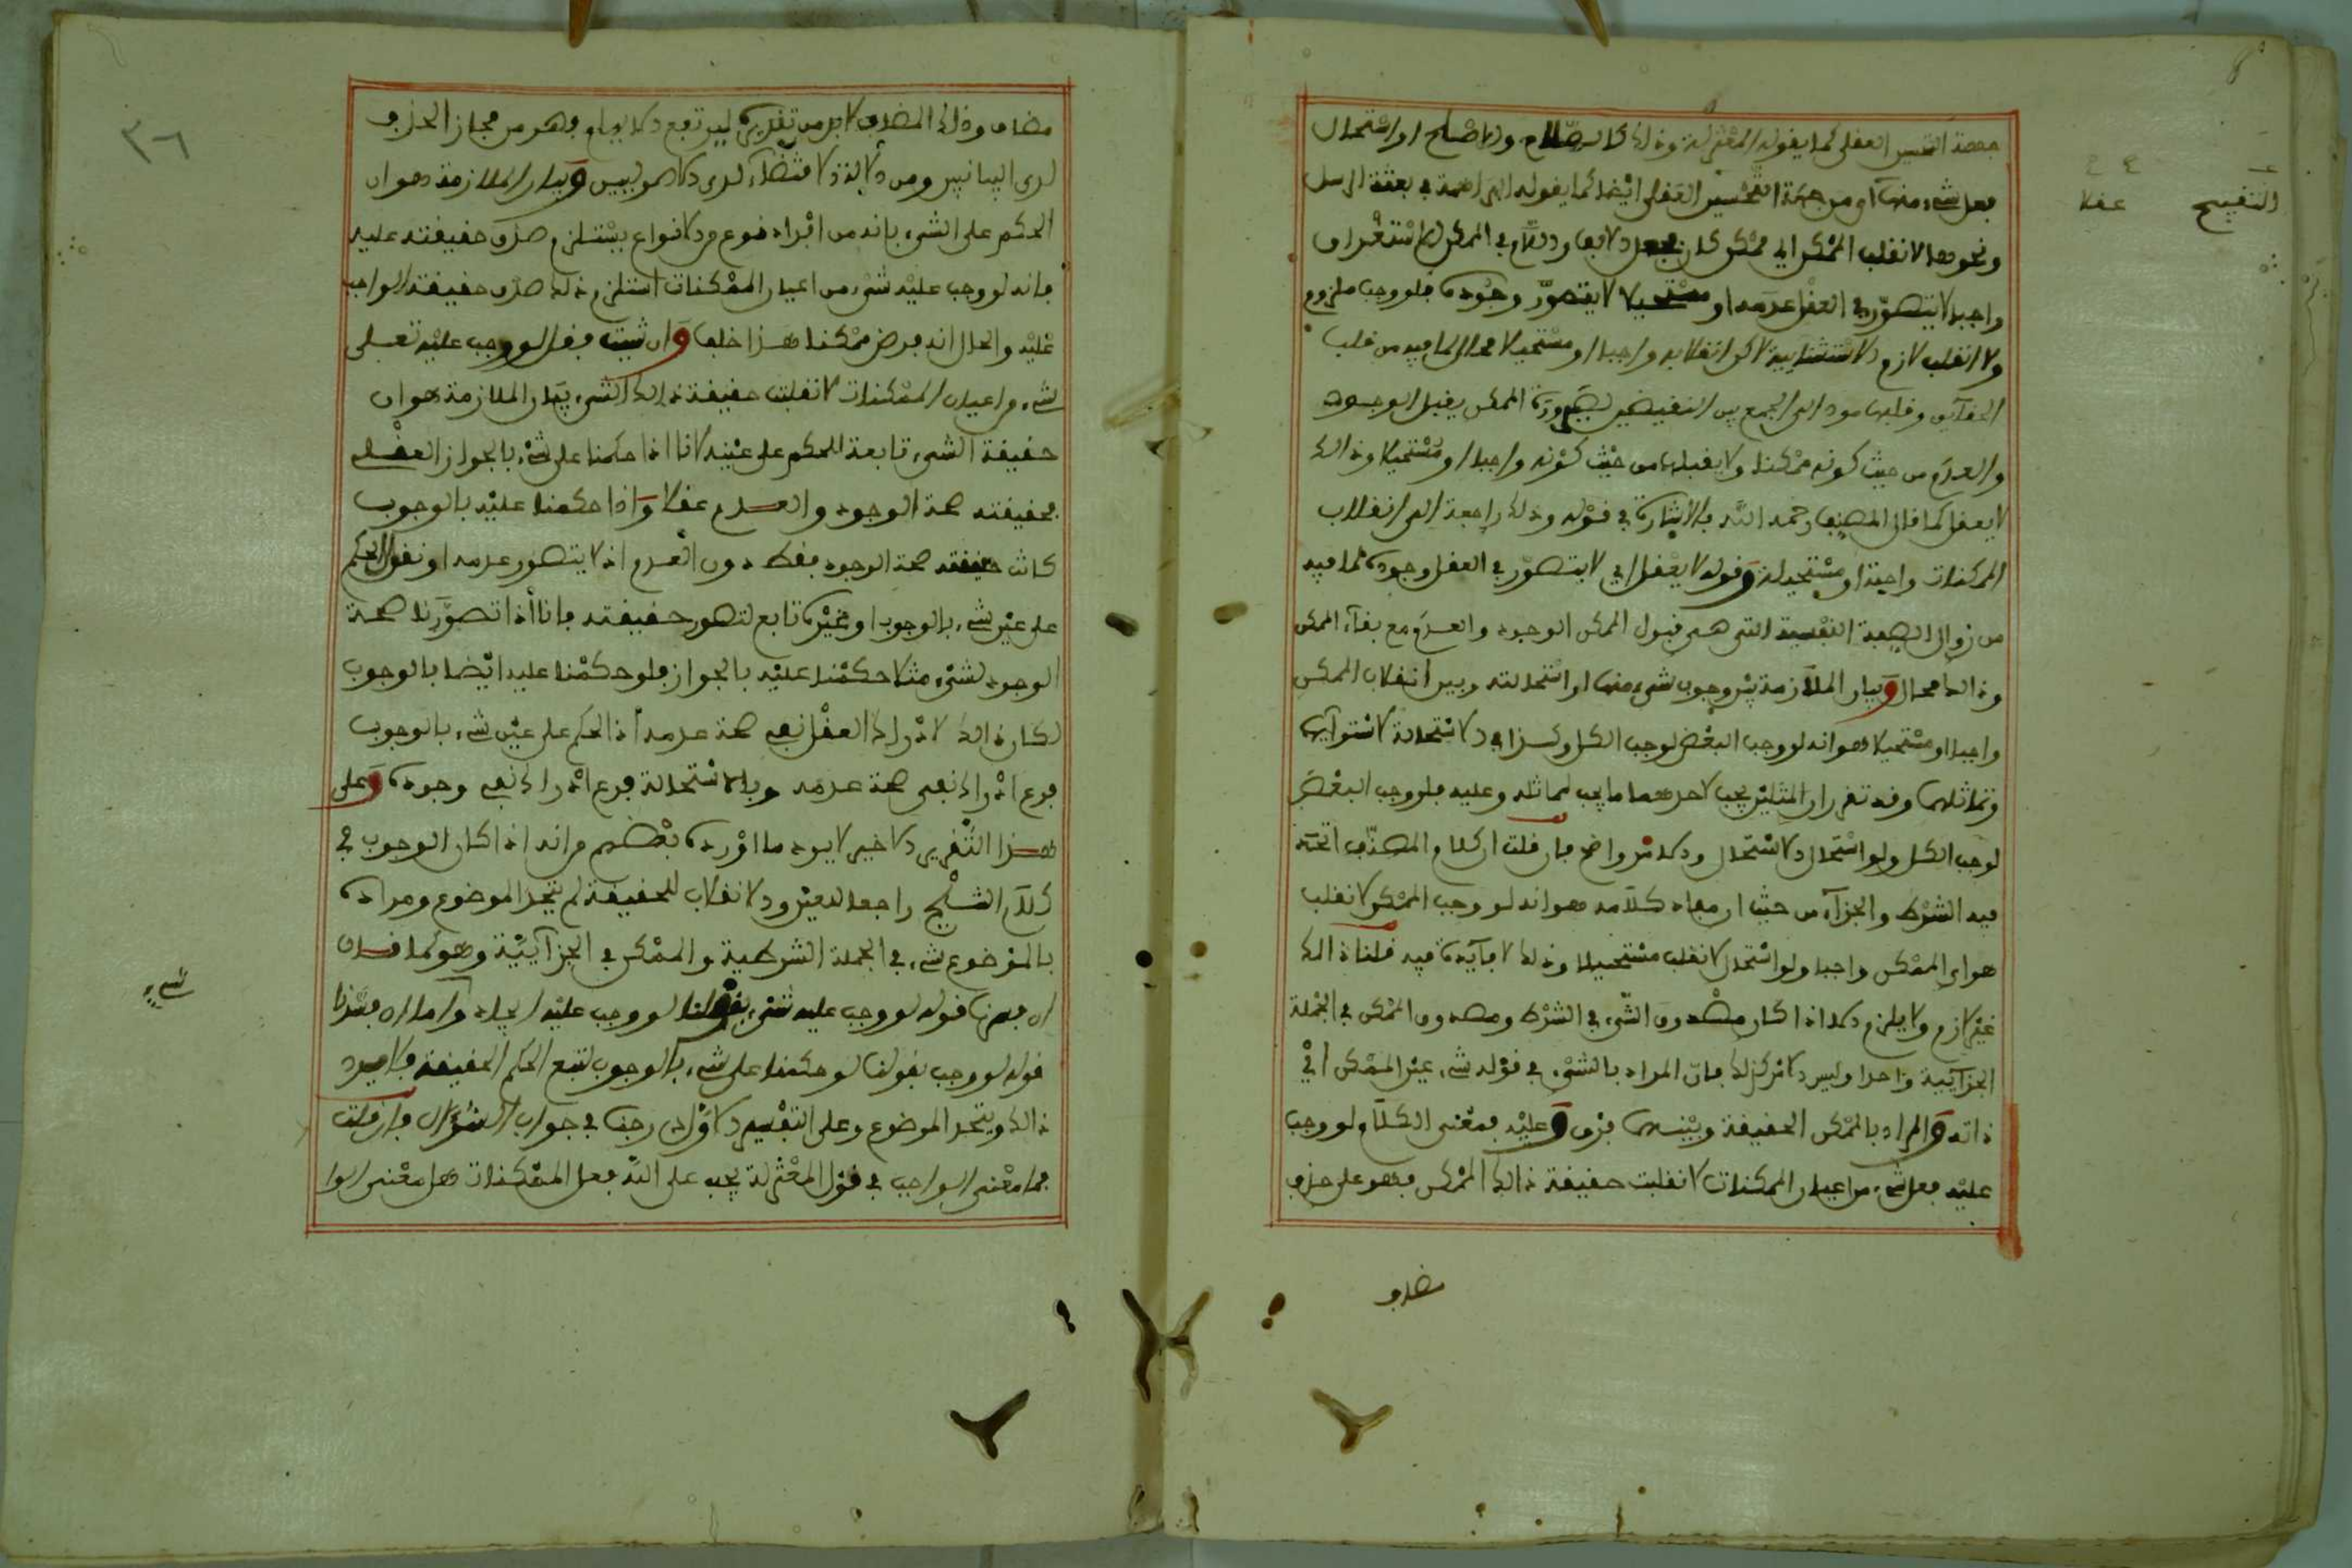 التقبيح
عقلا
جهة التحسين العقلي كما يقوله المعتزلة وذلك كالصلاح والاصلح او استحال
فعل شيء منها او من جهة التحسين العقلي ايضا كما يقوله البراهمة في بعثة الرسل
ونحوها لانقلب الممكن اي ممكن كان واللام في الممكن للاستغراق
واجبا لا يتصور في العقل عدمه او مستحيلا لا يتصور وجوده فلو وجب ملزوم
ولانقلب لازم الاستثنائية لاكن انقلابه واجبا او مستحيلا محال لما فيه من قلب
الحقائق وقلبها مود الى الجمع بين النقيضين لصيرورة الممكن يقبل الوجود
والعدم من حيث كونه ممكنا ولا يقبلها من حيث كونه واجبا او مستحيلا وذالك
لا يعقل كما قال المصنف رحمه الله بالاشارة في قوله وذلك راجعة الى انقلاب
الممكنات واجبة او مستحيلة وقوله لا يعقل اي لا يتصور في العقل وجوده لما فيه
من زوال الصفة النفسية التي هي قبول الممكن الوجود والعدم مع بقاء الممكن
وذالك محال وبيان الملازمة بين وجوب شيء منها او استحالته وبين انقلاب الممكن
واجبا او مستحيلا هو انه لو وجب البعض لوجب الكل وكذا في الاستحالة لاستوائها
وتماثلها وقد تقرر ان المثلين يجب لاحدهما ما يجب لمماثله وعليه فلو وجب البعض
لوجب الكل ولو استحال لاستحال والامر واضح فان قلت ان كلام المصنف اتحد
فيه الشرط والجزاء من حيث ان مفاد كلامه هو انه لو وجب الممكن لانقلب
هو اي الممكن واجبا ولو استحال لانقلب مستحيلا وذلك لا فائدة فيه قلنا ذالك
غير لازم ولا يلزم الا اذا كان مصدوق الشيء في الشرط ومصدوق الممكن في الجملة
الجزائية واحدا وليس الامر كذلك فان المراد بالشيء في قوله شيء عين الممكن اي
ذاته والمراد بالممكن الحقيقة وبينهما فرق وعليه فمعنى الكلام لو وجب
عليه فعل شيء من اعيان الممكنات لانقلبت حقيقة ذالك الممكن فهو على حذف
مضاف
٣٦
مضاف وذلك المضاف لا بد من تقديره ليرتفع الايهام وهو من مجاز الحذف
لدى البيانيين ومن دلالة الاقتضاء لدى الاصوليين وبيان الملازمة هو ان
الحكم على الشيء بانه من افراد نوع من الانواع يستلزم صدق حقيقته عليه
فانه لو وجب عليه شيء من اعيان الممكنات استلزم ذلك صدق حقيقة الواجب
عليه والحال انه فرض ممكنا هذا خلف وان شيت فقل لو وجب عليه تعلى
شيء من اعيان الممكنات لانقلبت حقيقة ذالك الشيء بيان الملازمة هو ان
حقيقة الشيء تابعة للحكم على عينه لانا اذا حكمنا على شيء بالجواز العقلي
فحقيقته صحة الوجود والعدم عقلا واذا حكمنا عليه بالوجوب
كانت حقيقته صحة الوجود فقط دون العدم اذ لا يتصور عدمه او نقول الحكم
على عين شيء بالوجوب او غيره تابع لتصور حقيقته فانا اذا تصورنا صحة
الوجود لشيء مثلا حكمنا عليه بالجواز فلو حكمنا عليه ايضا بالوجوب
لكان ذالك لادراك العقل نفي صحة عدمه اذ الحكم على عين شيء بالوجوب
فرع ادراك نفي صحة عدمه وبالاستحالة فرع ادراك نفي وجوده وعلى
هذا التقرير الاخير لا يرد ما اورده بعضهم من انه اذا كان الوجوب في
كلام الشيخ راجعا للعين والانقلاب للحقيقة لم يتحد الموضوع ومراده
بالموضوع شيء في الجملة الشرطية والممكن في الجزائية وهو كما قال
شيء
ان فسرنا قوله لو وجب عليه شيء بقولنا لو وجب عليه ايجاد واما ان فسرنا
قوله لو وجب بقولنا لو حكمنا على شيء بالوجوب لتبع الحكم الحقيقة فلا يرد
ذالك ويتحد الموضوع وعلى التفسير الاول في جواب السؤال فان قلت
فما معنى الواجب في قول المعتزلة يجب على الله فعل الممكنات هل معنى الوا